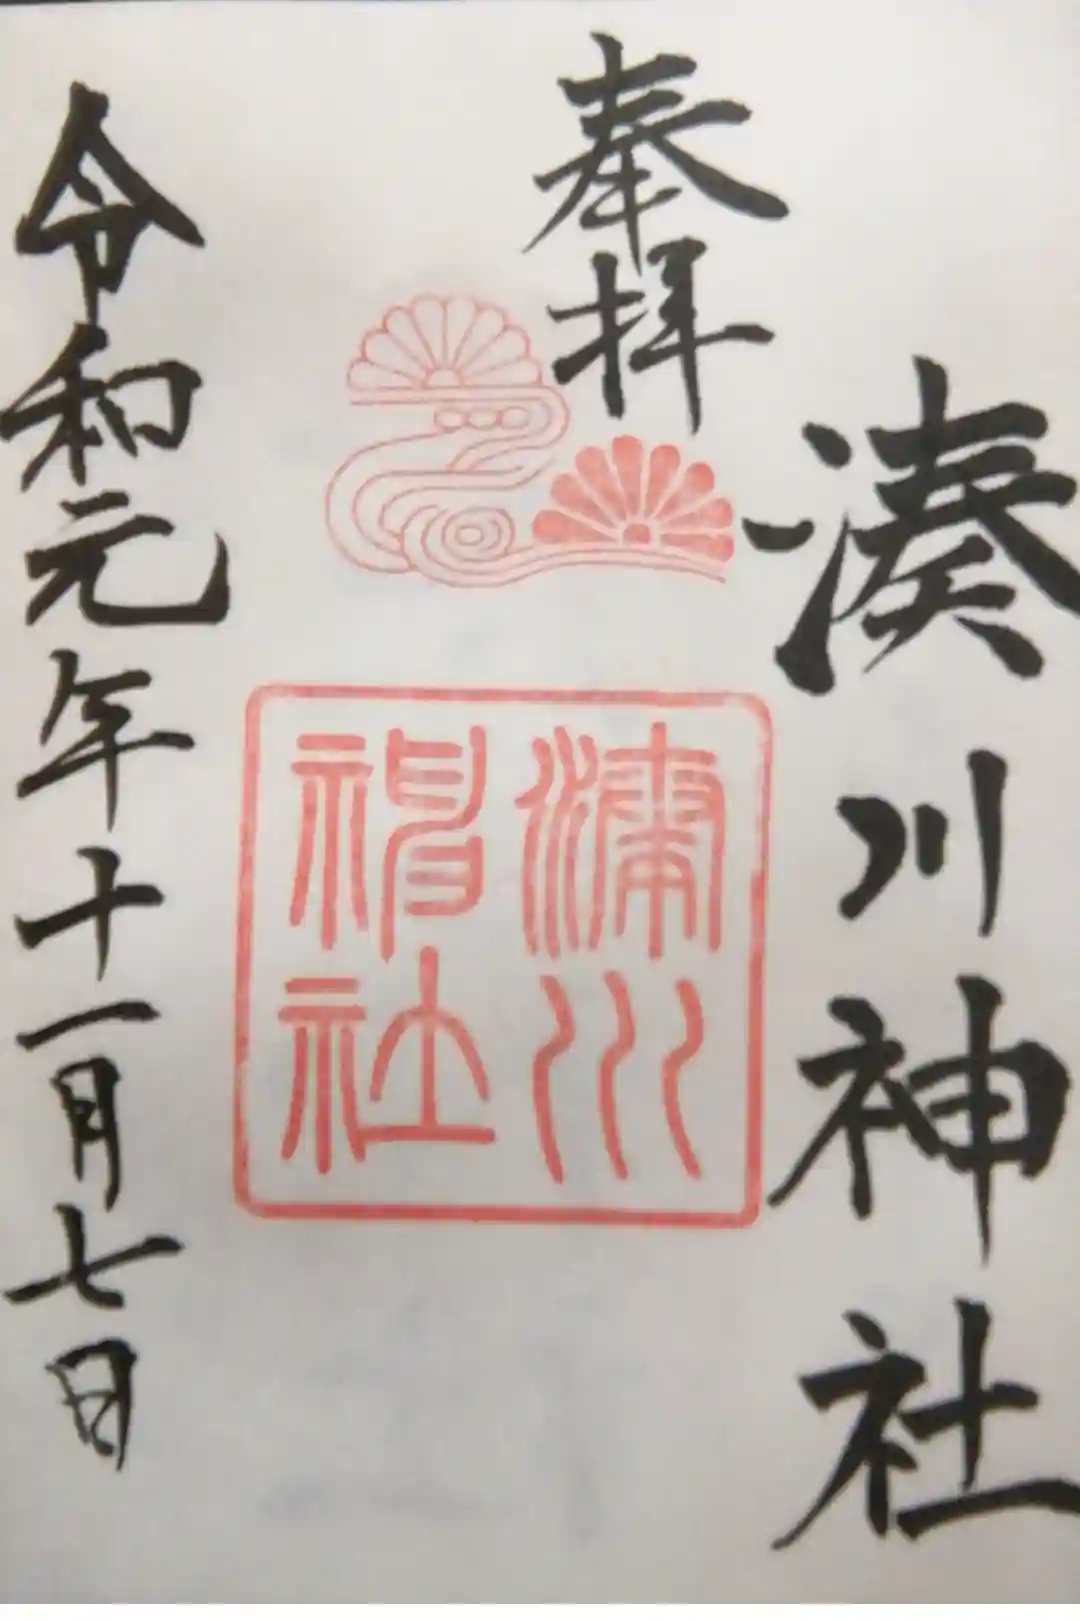 湊川神社
奉拝
湊川
神社
令和元年十一月七日